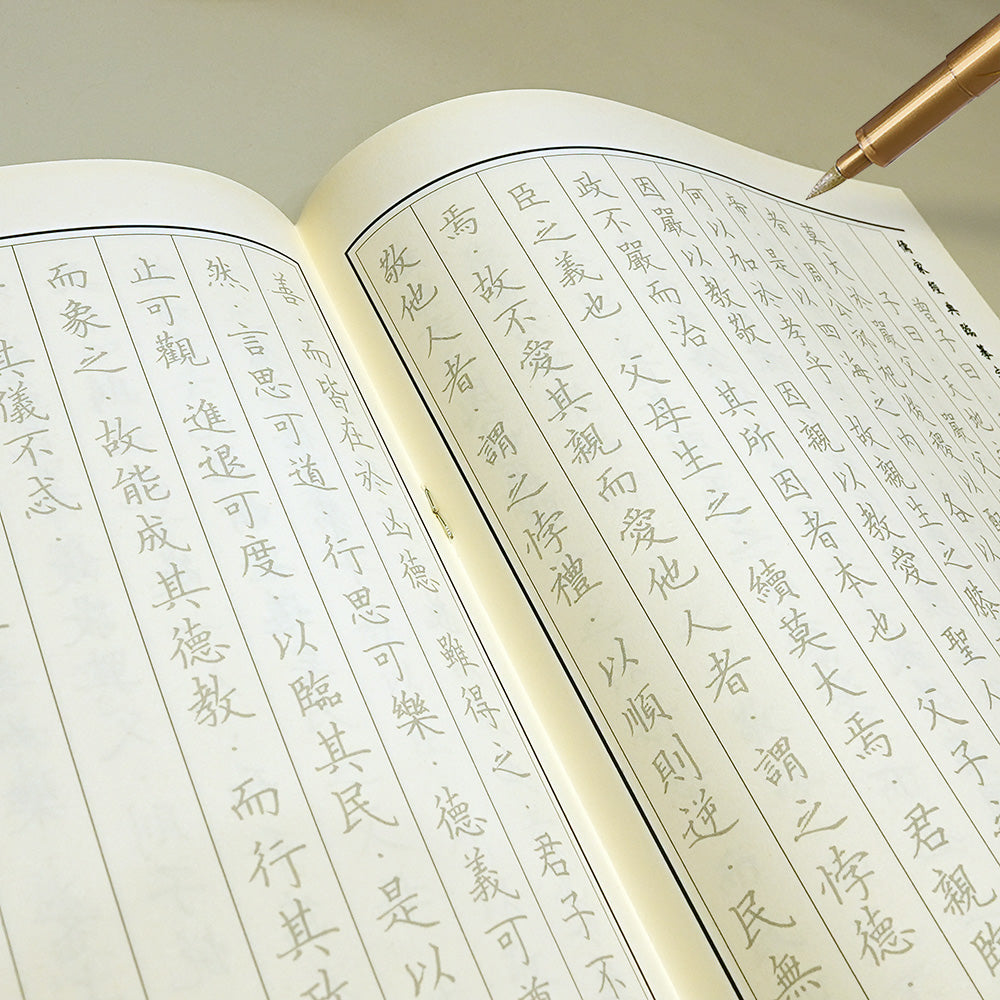 儒家經典臨摹
曾子曰
何以加於孝乎．故親生之膝
因嚴以教敬．因親以教愛．聖人
政不嚴而治．其所因者本也．父子
臣之義也．父母生之．續莫大焉．君親臨
焉．故不愛其親而愛他人者．謂之悖德
敬他人者．謂之悖禮．以順則逆．民無
善．而皆在於凶德．雖得之．君子不
然．言思可道．行思可樂．德義可尊
止可觀．進退可度．以臨其民．是以
而象之．故能成其德教．而行其政
其儀不忒